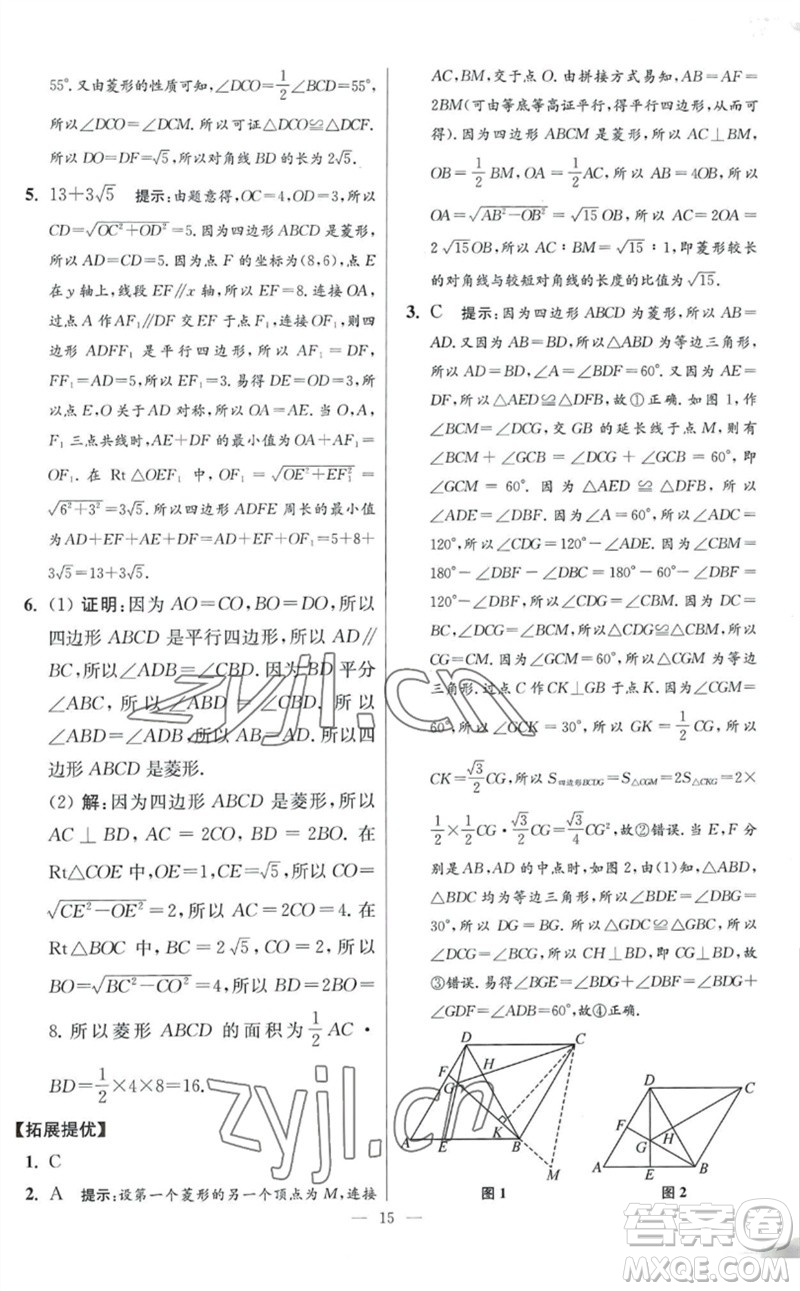 55°. 又由菱形的性质可知，∠DCO=1/2∠BCD=55°，
所以∠DCO=∠DCM. 所以可证△DCO≌△DCF.
所以 DO=DF=√5，所以对角线 BD 的长为 2√5.
5. 13+3√5　提示：由题意得，OC=4，OD=3，所以
CD=√(OC²+OD²)=5. 因为四边形 ABCD 是菱形，
所以 AD=CD=5. 因为点 F 的坐标为(8,6)，点 E
在 y 轴上，线段 EF∥x 轴，所以 EF=8. 连接 OA，
过点 A 作 AF₁∥DF 交 EF 于点 F₁，连接 OF₁，则四
边形 ADFF₁ 是平行四边形，所以 AF₁=DF，
FF₁=AD=5，所以 EF₁=3. 易得 DE=OD=3，所
以点 E,O 关于 AD 对称，所以 OA=AE. 当 O,A,
F₁ 三点共线时，AE+DF 的最小值为 OA+AF₁=
OF₁. 在 Rt△OEF₁ 中，OF₁=√(OE²+EF₁²)=
√(6²+3²)=3√5. 所以四边形 ADFE 周长的最小值
为 AD+EF+AE+DF=AD+EF+OF₁=5+8+
3√5=13+3√5.
6. (1) 证明：因为 AO=CO，BO=DO，所以
四边形 ABCD 是平行四边形，所以 AD∥
BC，所以∠ADB=∠CBD. 因为 BD 平分
∠ABC，所以∠ABD=∠CBD，所以
∠ABD=∠ADB，所以 AB=AD. 所以四
边形 ABCD 是菱形.
(2) 解：因为四边形 ABCD 是菱形，所以
AC⊥BD，AC=2CO，BD=2BO. 在
Rt△COE 中，OE=1，CE=√5，所以 CO=
√(CE²−OE²)=2，所以 AC=2CO=4. 在
Rt△BOC 中，BC=2√5，CO=2，所以
BO=√(BC²−CO²)=4，所以 BD=2BO=
8. 所以菱形 ABCD 的面积为1/2AC·
BD=1/2×4×8=16.
【拓展提优】
1. C
2. A　提示：设第一个菱形的另一个顶点为 M，连接
AC,BM，交于点 O. 由拼接方式易知，AB=AF=
2BM(可由等底等高证平行，得平行四边形，从而可
得). 因为四边形 ABCM 是菱形，所以 AC⊥BM，
OB=1/2BM，OA=1/2AC. 在 Rt△AOB 中，所以
OA=√(AB²−OB²)=√15OB，所以 AC=2OA=
2√15OB，所以 AC∶BM=√15∶1，即菱形较长
的对角线与较短对角线的长度的比值为√15.
3. C　提示：因为四边形 ABCD 为菱形，所以 AB=
AD. 又因为 AB=BD，所以△ABD 为等边三角形，
所以 AD=BD，∠A=∠BDF=60°. 又因为 AE=
DF，所以△AED≌△DFB，故①正确. 如图 1，作
∠BCM=∠DCG，交 GB 的延长线于点 M，则有
∠BCM+∠GCB=∠DCG+∠GCB=60°，即
∠GCM=60°. 因为△AED≌△DFB，所以
∠ADE=∠DBF. 因为∠A=60°，所以∠ADC=
120°，所以∠CDG=120°−∠ADE. 因为∠CBM=
180°−∠DBF−∠DBC=180°−60°−∠DBF=
120°−∠DBF，所以∠CDG=∠CBM. 因为 DC=
BC，∠DCG=∠BCM，所以△CDG≌△CBM，所以
CG=CM. 因为∠GCM=60°，所以△CGM 为等边
三角形. 过点 C 作 CK⊥GB 于点 K. 因为∠CGM=
60°，所以∠GCK=30°，所以 GK=1/2CG，所以
CK=√3/2CG，所以 S四边形BCDG=S△CGM=2S△CKG=2×
1/2×1/2CG·√3/2CG=√3/4CG²，故②错误. 当 E,F 分
别是 AB,AD 的中点时，如图 2，由(1)知，△ABD，
△BDC 均为等边三角形，所以∠BDE=∠DBG=
30°，所以 DG=BG. 所以△GDC≌△GBC，所以
∠DCG=∠BCG，所以 CH⊥BD，即 CG⊥BD，故
③错误. 易得∠BGE=∠BDG+∠DBF=∠BDG+
∠GDF=∠ADB=60°，故④正确.
D C F H G K A E B M
图 1
D C F G H A E B
图 2
— 15 —
zyjl.cn
zyjl.cn
答案卷
MXQE.COM